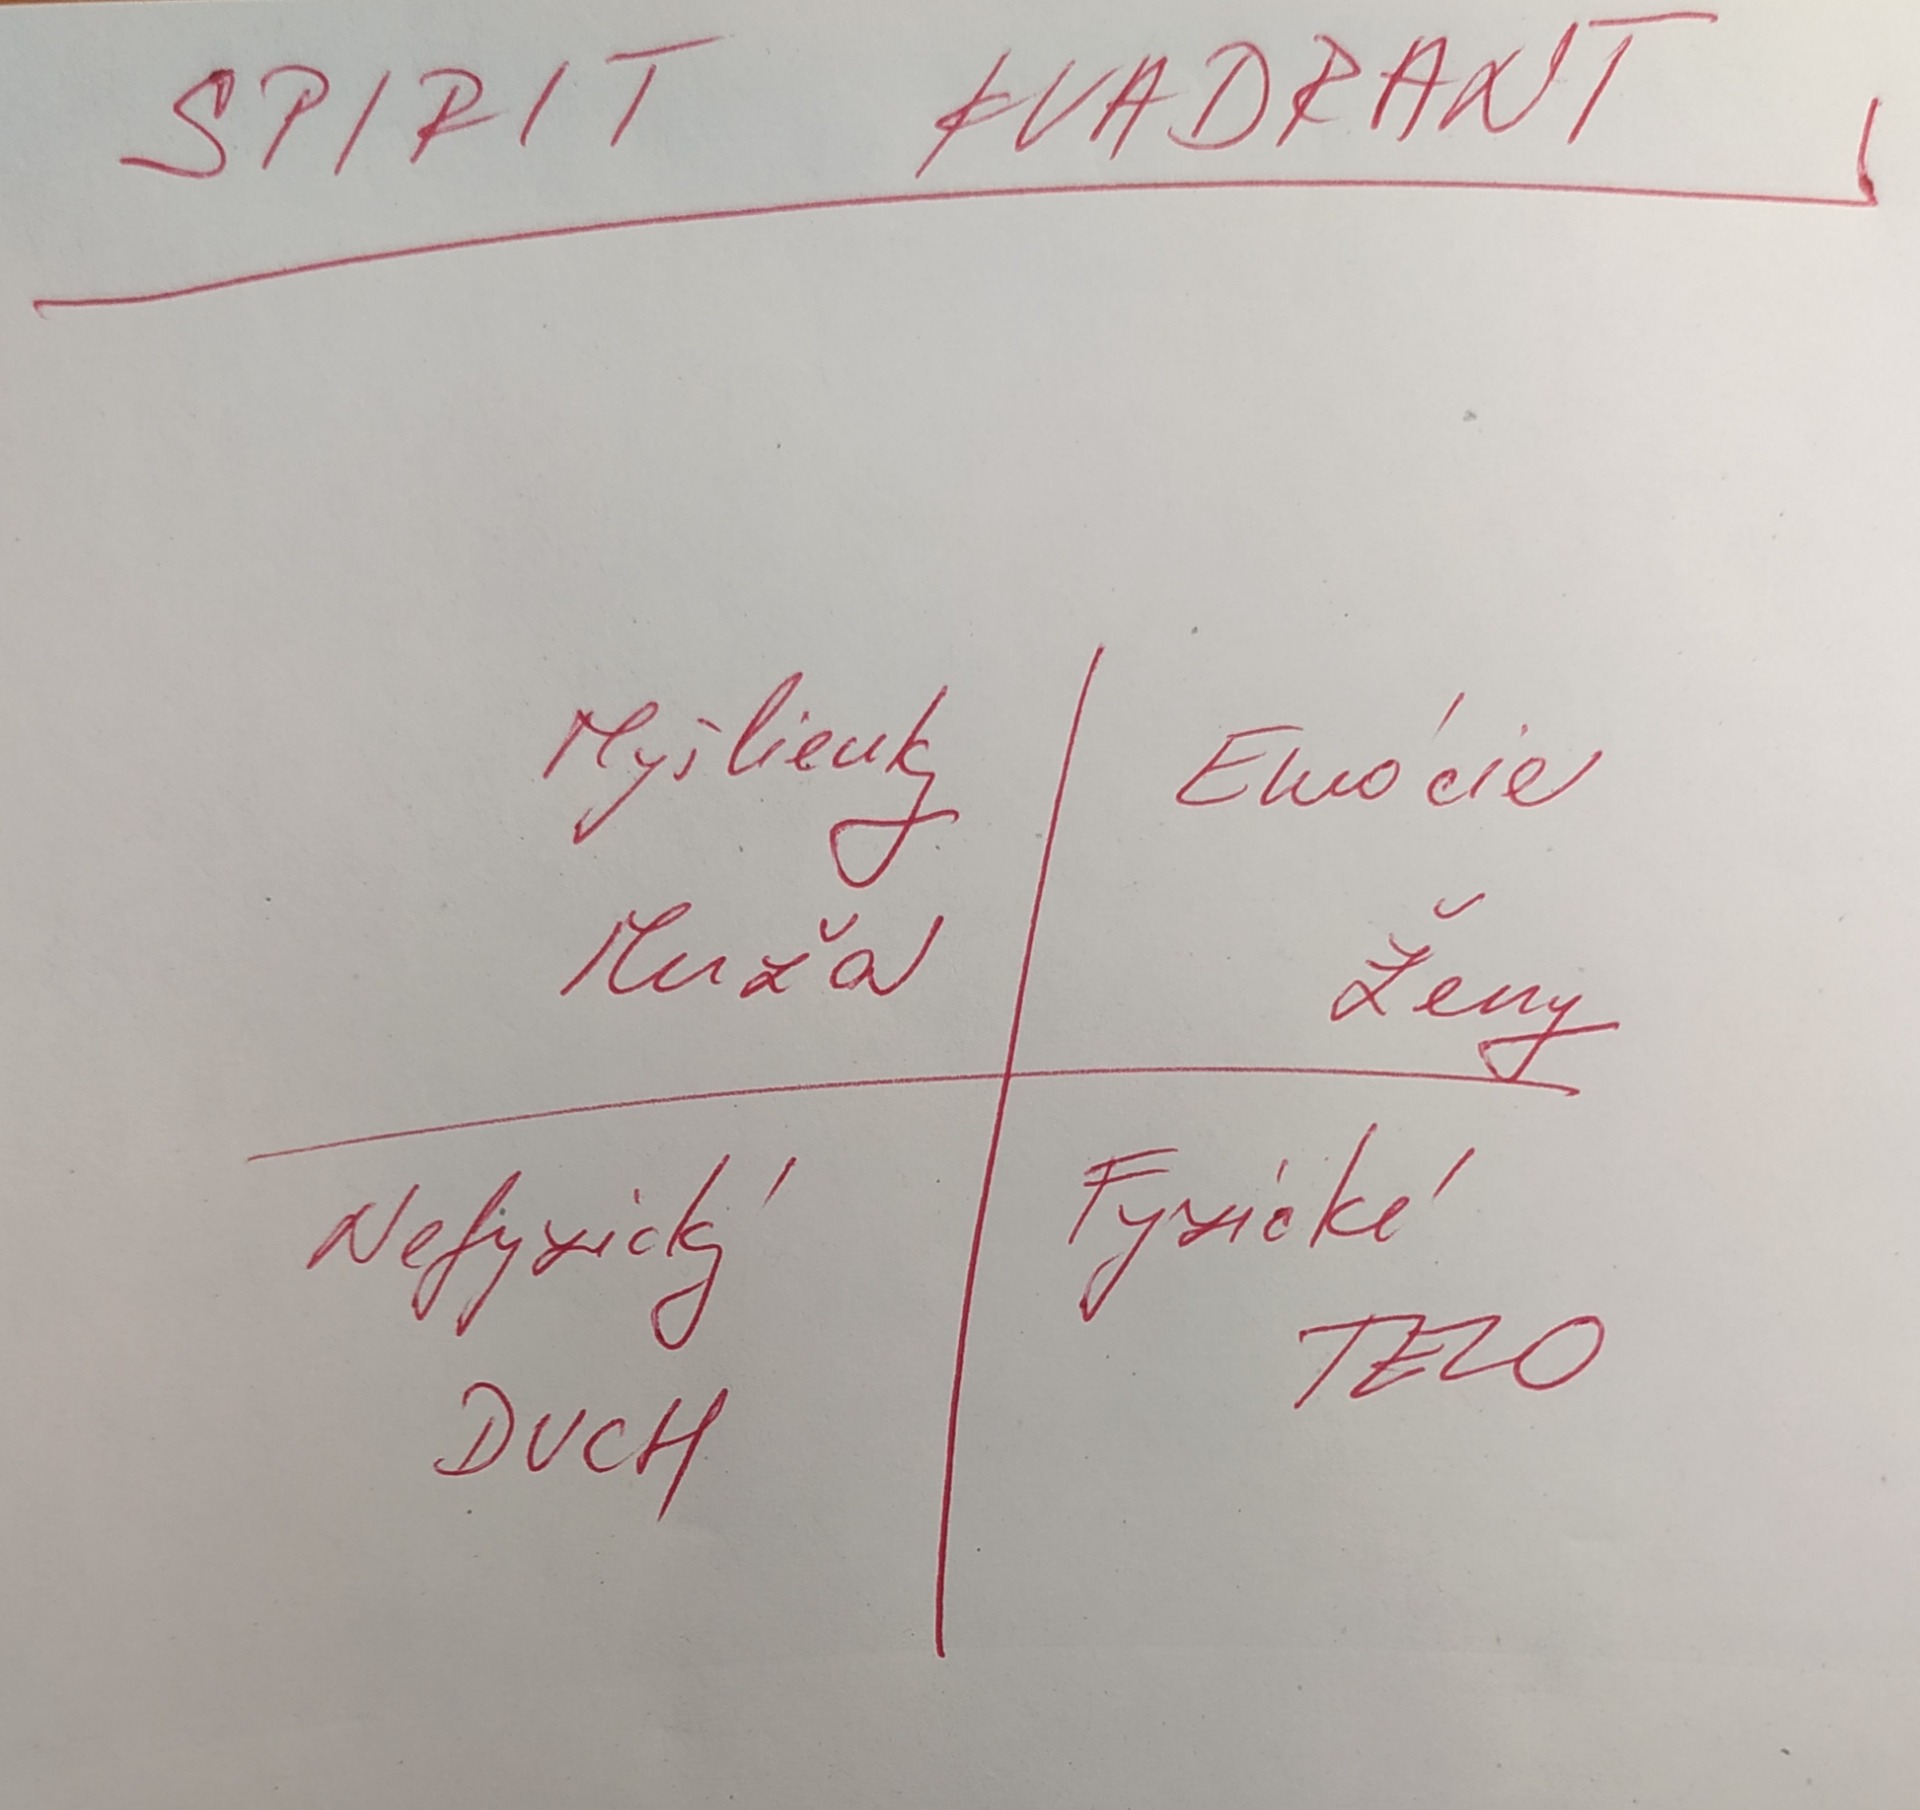 SPIRIT KVADRANT
Myšlienky
Muža
Emócie
Ženy
Nefyzický
DUCH
Fyzické
TELO